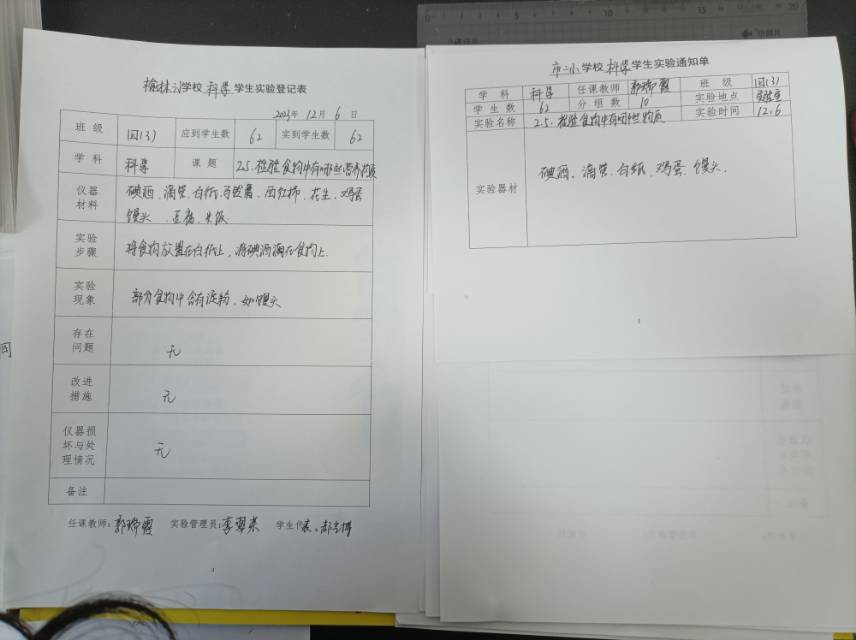 学校科学学生实验登记表
2023年 12月 6日
班级 四(3) 应到学生数 62 实到学生数 62
学科 科学 课题 2.5.检验食物中有哪些营养物质
仪器材料 碘酒、滴管、白纸、马铃薯、西红柿、花生、鸡蛋
馒头、豆腐、米饭
实验步骤 将食物放置在白纸上，将碘酒滴在食物上.
实验现象 部分食物中含有淀粉、如馒头
存在问题 无
改进措施 无
仪器损坏与处理情况 无
备注
任课教师： 实验管理员： 学生代表：
市二小学校科学学生实验通知单
学科 科学 任课教师 班级 四(3)
学生数 62 分组数 10 实验地点 实验室
实验名称 2.5.检验食物中有哪些物质 实验时间 12.6
实验器材 碘酒、滴管、白纸、鸡蛋、馒头、